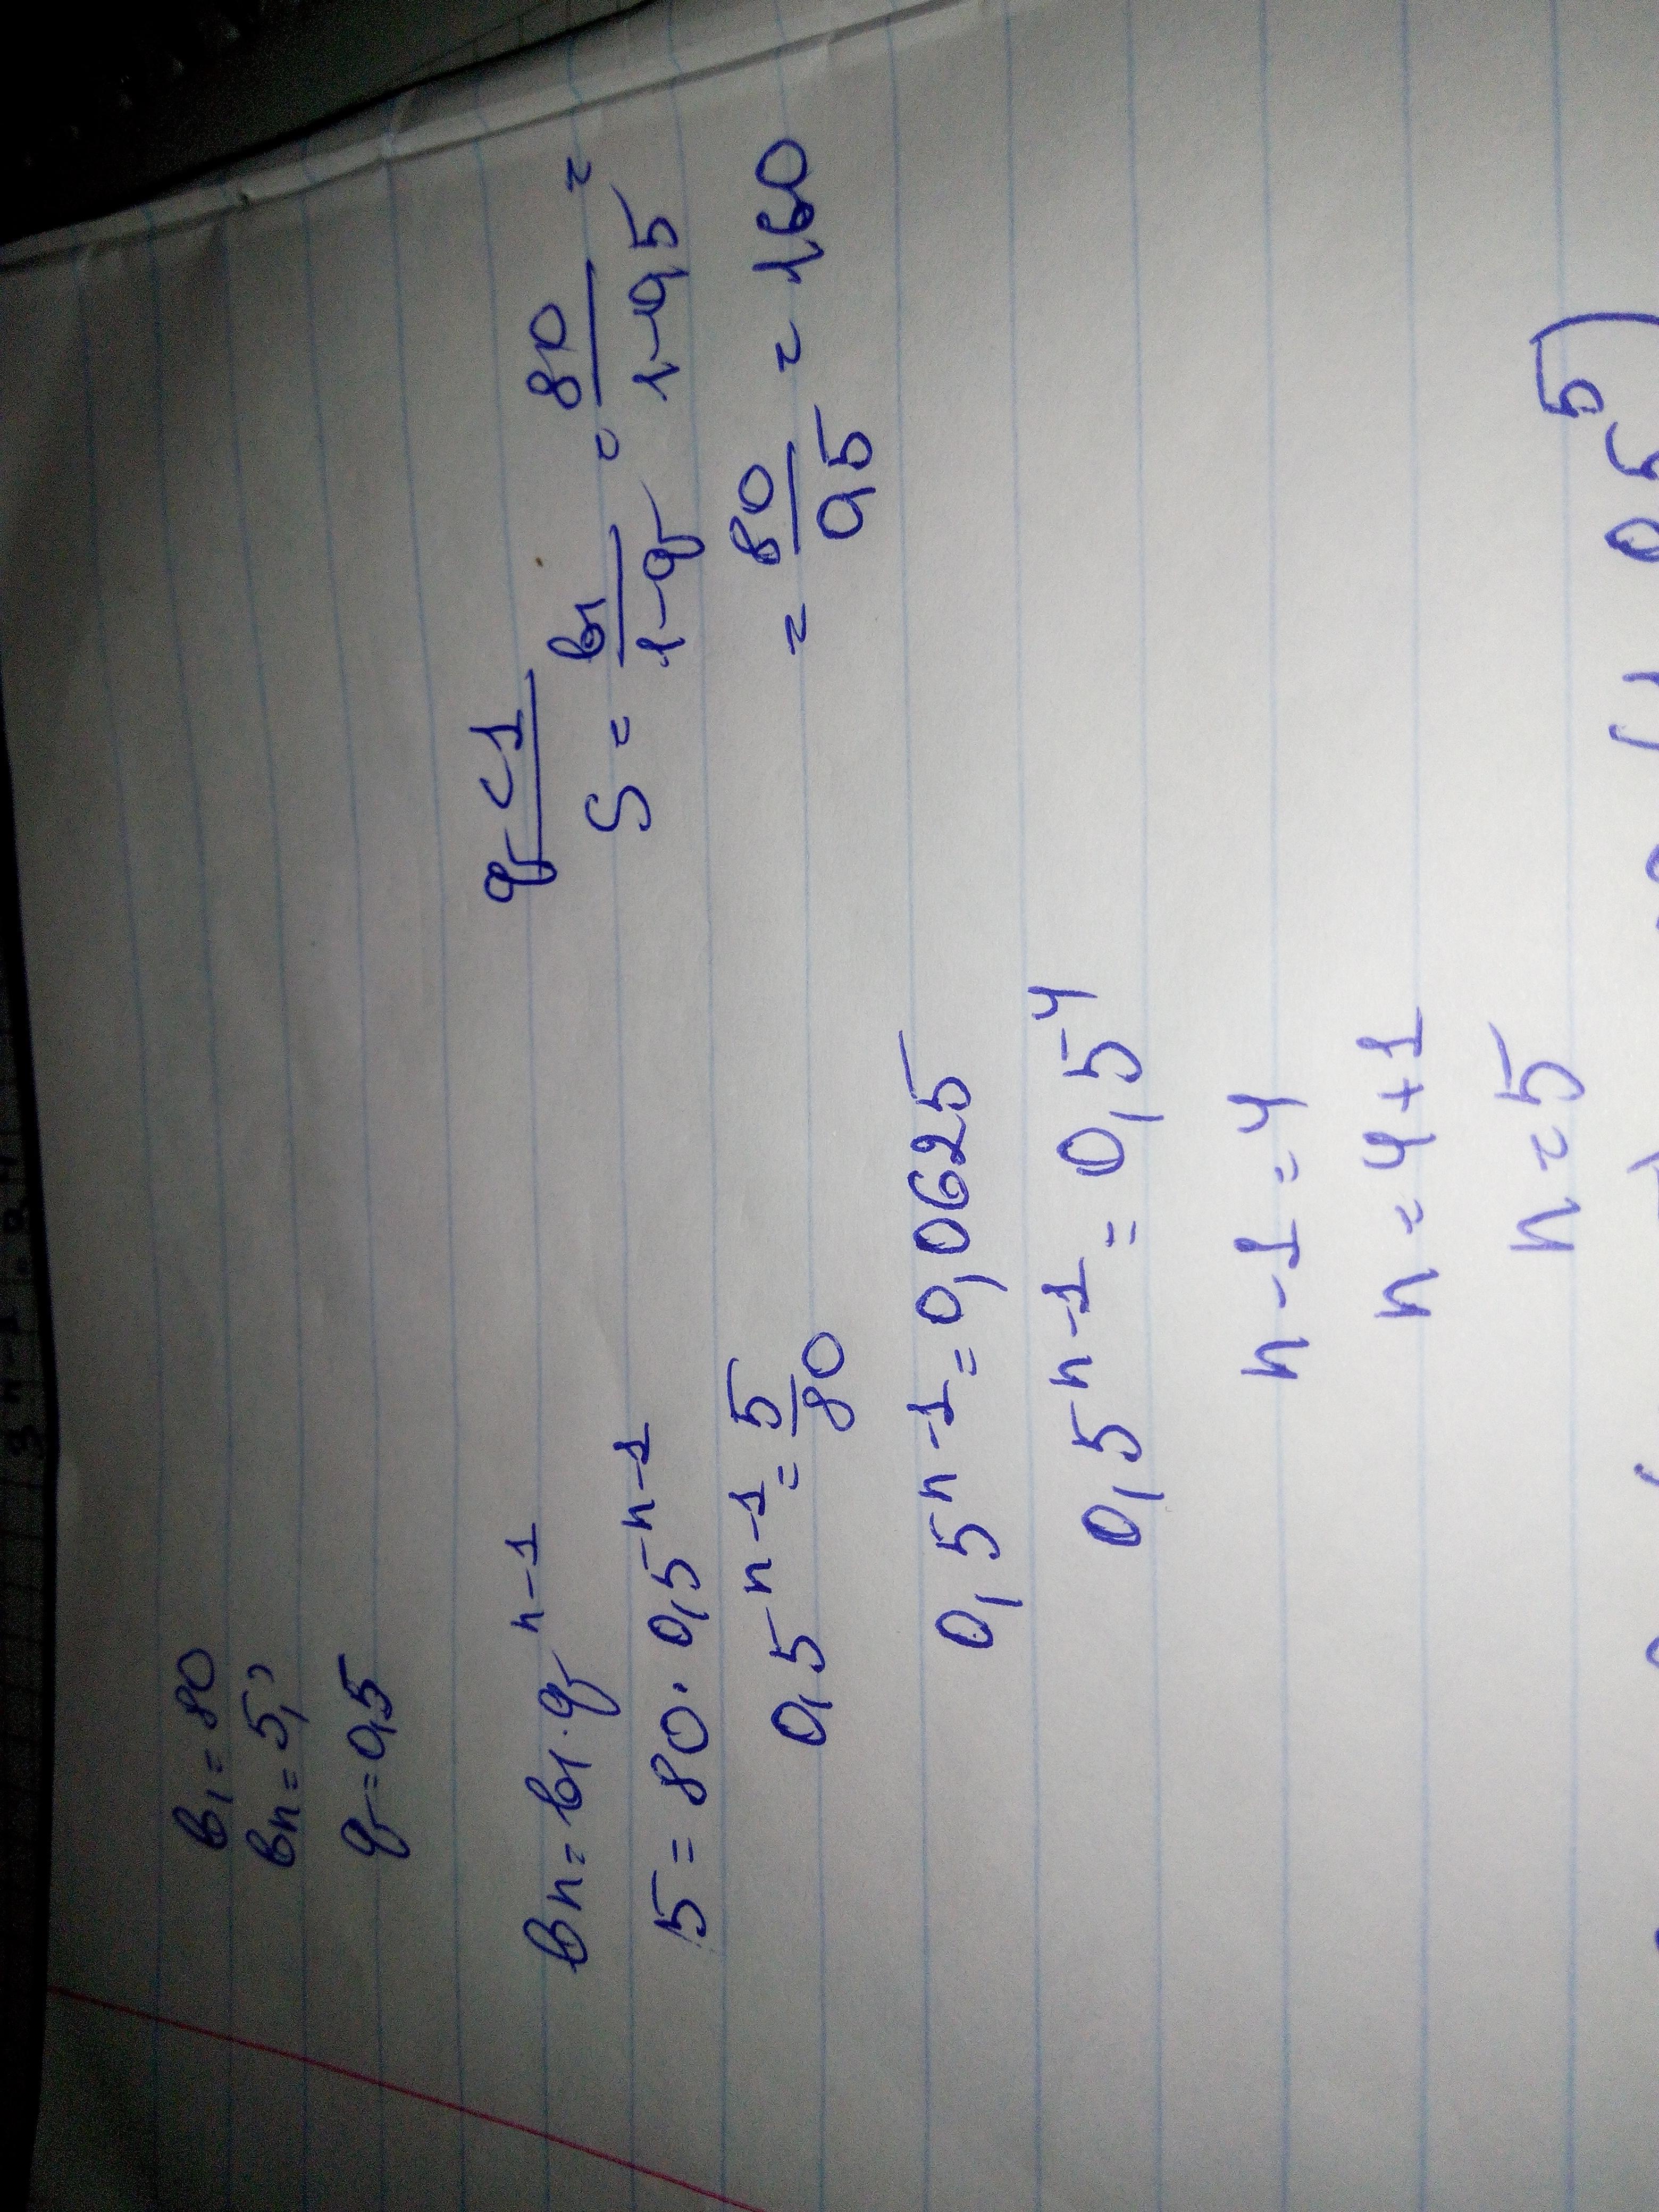 b₁ = 80
bn = 5,
q = 0,5
bn = b₁ · q^{n-1}
5 = 80 · 0,5^{n-1}
0,5^{n-1} = 5/80
0,5^{n-1} = 0,0625
0,5^{n-1} = 0,5^4
n - 1 = 4
n = 4 + 1
n = 5
q < 1
S = b₁/(1-q) = 80/(1-0,5) =
= 80/0,5 = 160